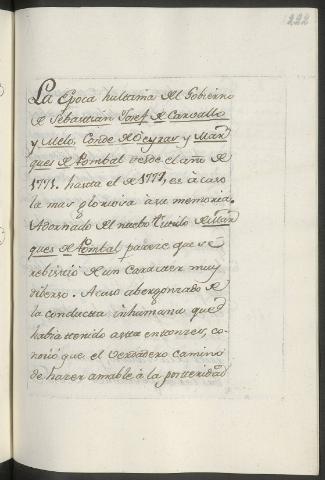 222
La Epoca hultima del Gobierno
de Sebastian Josef de Carvallo
y Melo, Conde de Oeyras y Mar
ques de Pombal desde el año de
1771. hasta el de 1777, es acaso
la mas gloriosa a su memoria.
Adornado del nuebo titulo de Mar
ques de Pombal pareze que se
rebistió de un Caracter muy
diberso. Acaso abergonzado de
la conducta inhumana que
habia tenido asta entonzes, co-
noció que el verdadero camino
de hazer amable à la posteridad